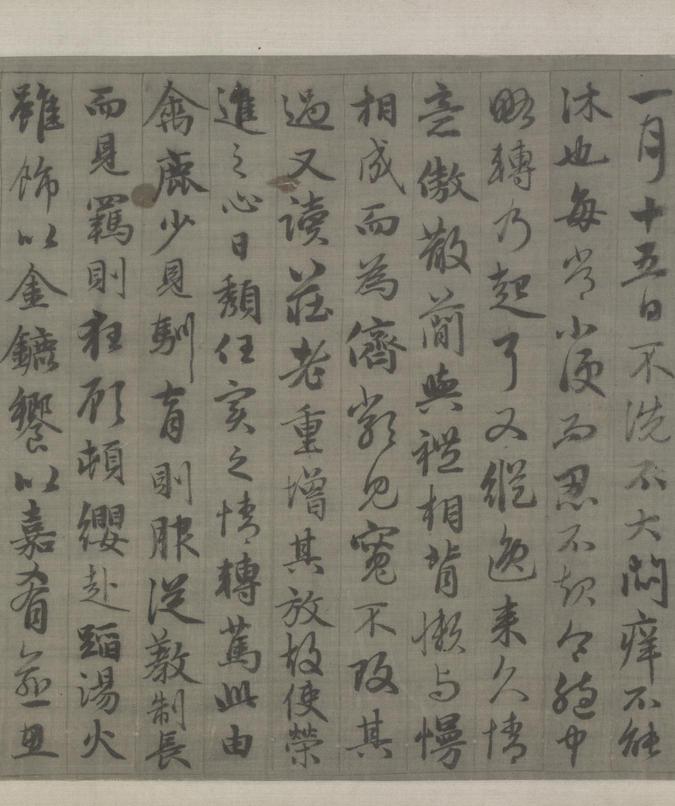 一月十五日不洗不大悶癢不能
沐也每常小便而忍不起令胞中
略轉乃起耳又縱逸来久情
意傲散簡與禮相背懶与慢
相成而為儕類見寬不攻其
過又讀莊老重增其放故使榮
進之心日頹任實之情轉篤此由
禽鹿少見馴育則服從教制長
而見羈則狂顧頓纓赴蹈湯火
雖飾以金鑣饗以嘉肴愈思